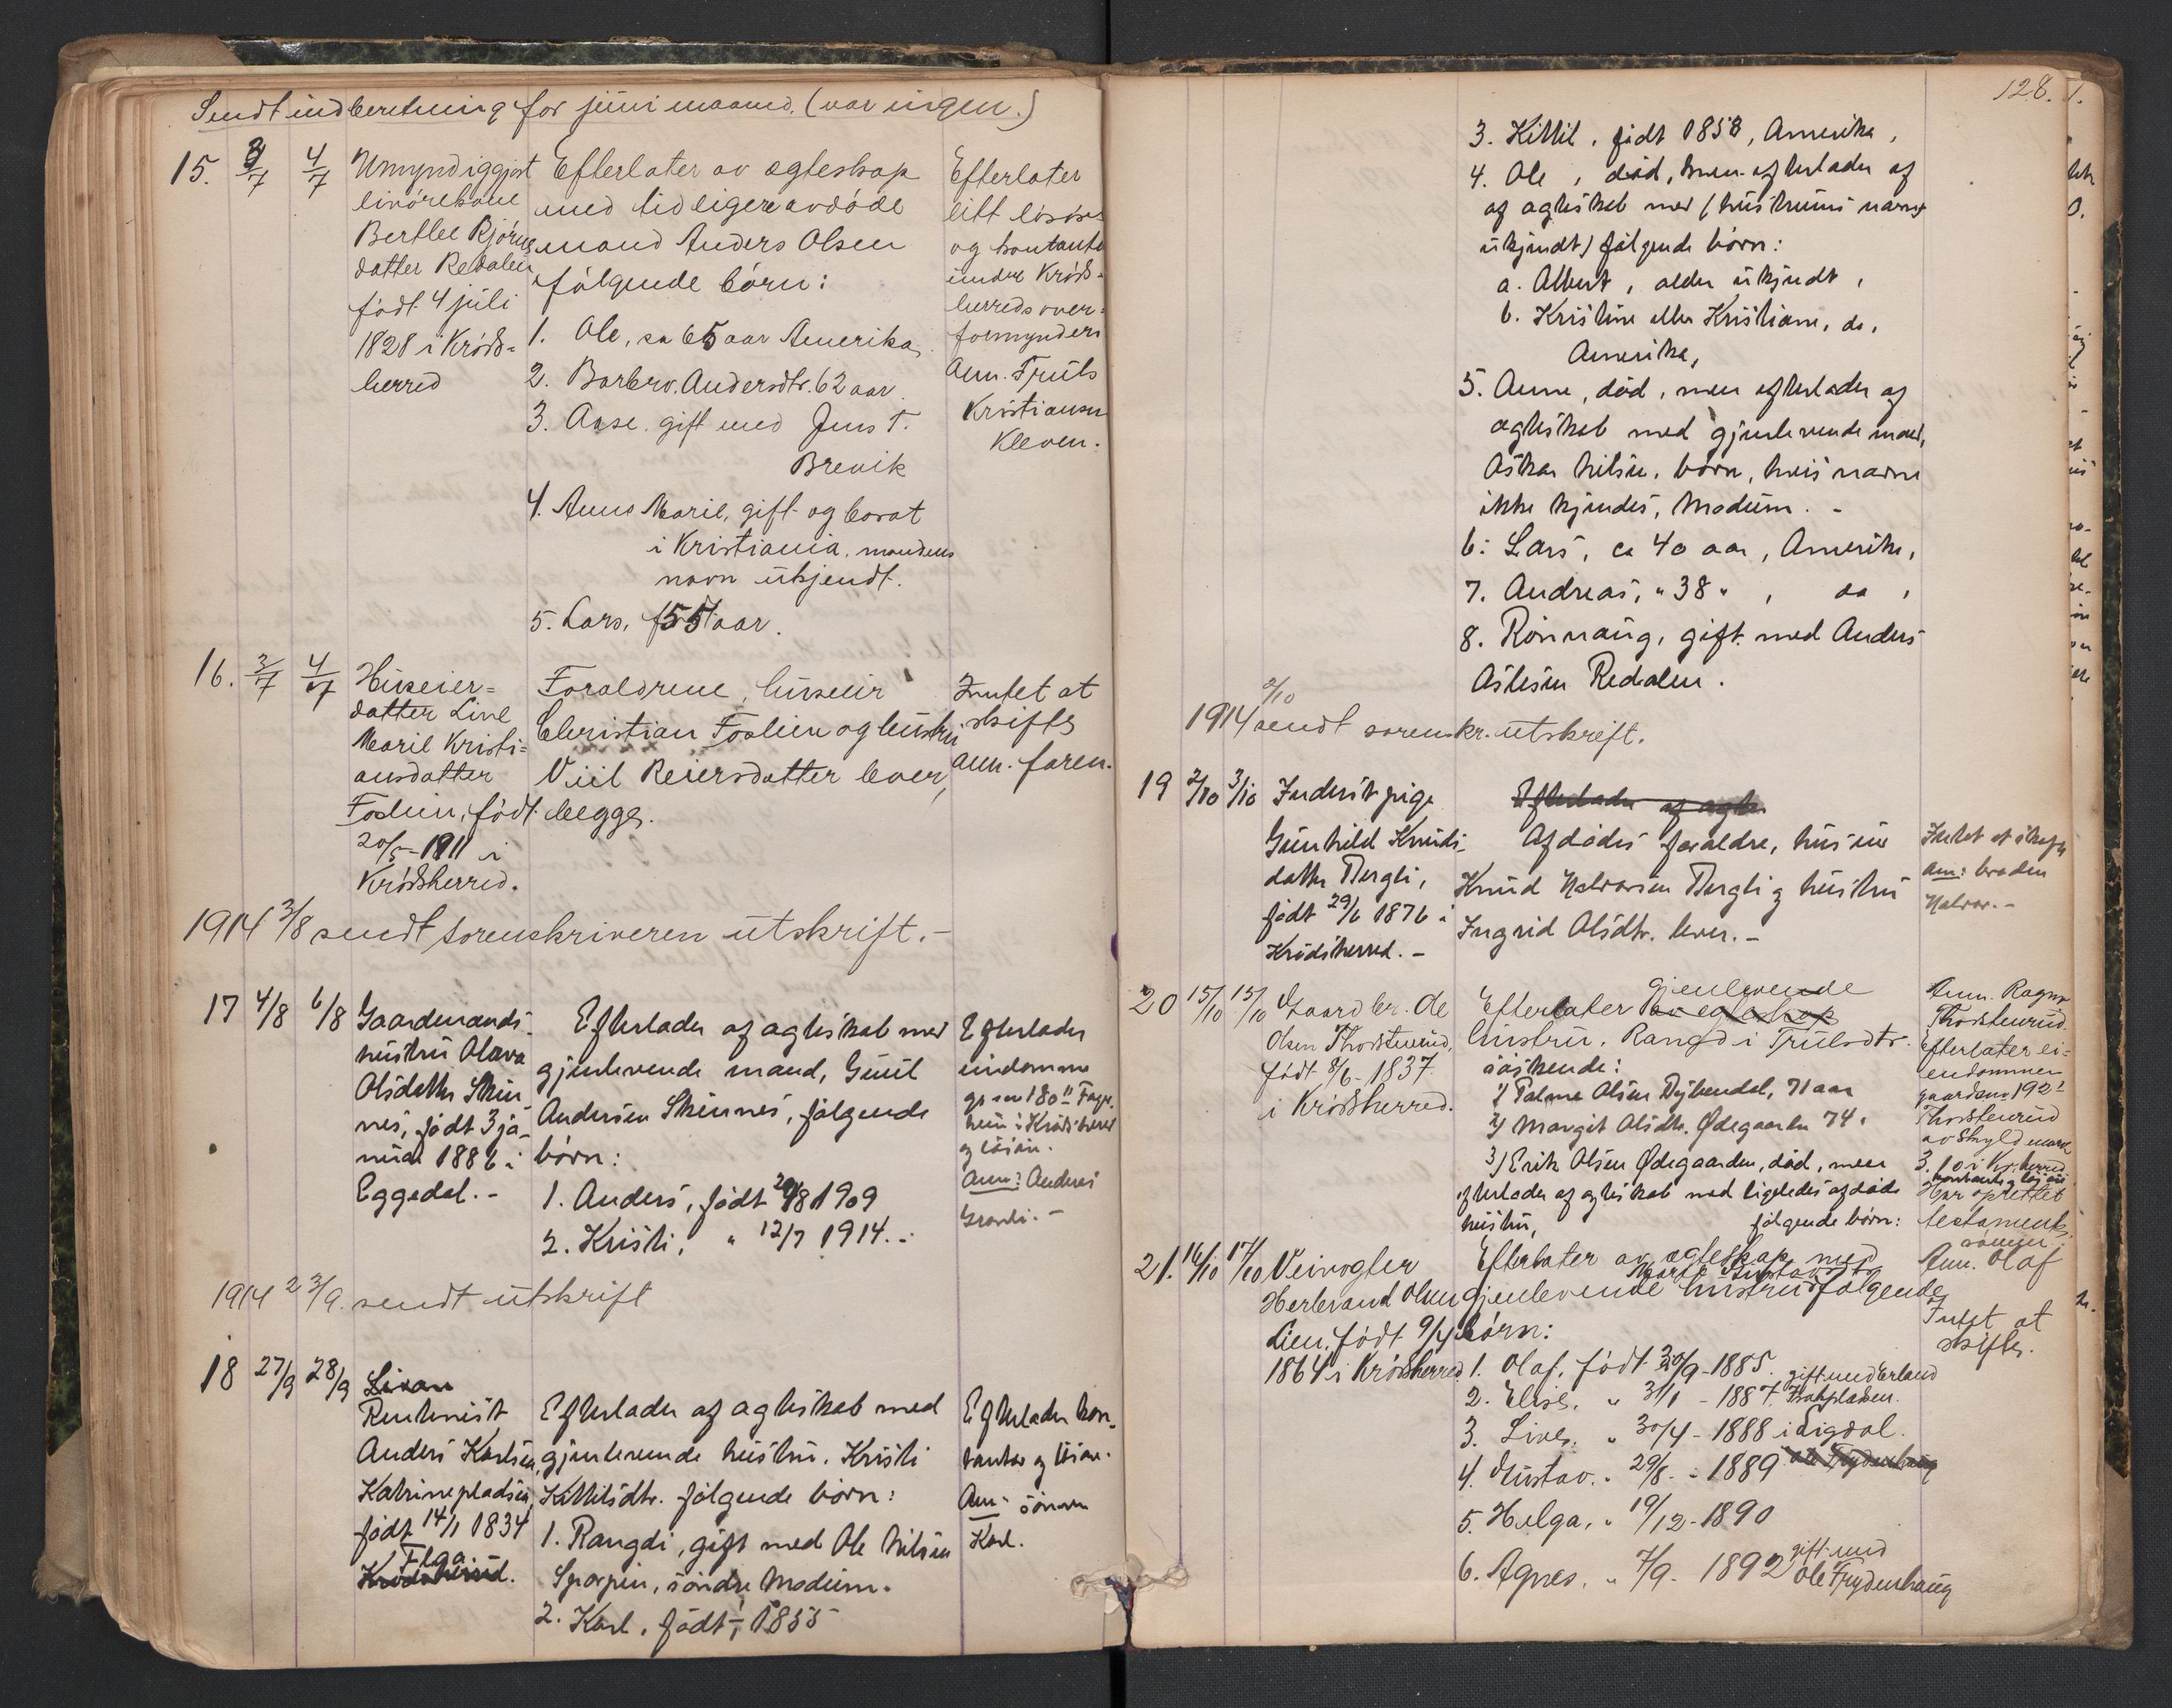 Sendt indberetning for juni maaned. (var ingen.)
15. 3/7 4/7
Umyndiggjort
livørekone
Berthe Bjørns
datter Redalen
født 4 juli
1828 i Kröds-
herred
Efterlater av ægteskap
med tidligere avdøde
mand Anders Olsen
følgende børn:
1. Ole, ca 65 aar Amerika,
2. Barbro Andersdtr. 62 aar.
3. Aase. gift med Jens T.
Brevik
4. Anne Marie, gift og borat
i Kristiania. mandens
navn ukjendt.
5. Lars, 55 aar.
Efterlater
litt løsøre
og kontante
under Kröds-
herreds over-
formynderi
Anm. Truls
Kristiansen
Kleven.
16. 3/7 4/7
Huseier-
datter Live
Marie Kristi-
ansdatter
Foslien, født
20/5-1911 i
Krödsherred.
Foraldrene, huseier
Christian Foslien og hustru
Viil Reiersdatter lever,
begge.
Intet at
skifte
anm. faren.
1914 3/8 sendt sorenskriveren utskrift.-
17 4/8 6/8
Gaardmands-
hustru Olava
Olsdatter Skin-
nes, født 3 ja-
nuar 1886 i
Eggedal.-
Efterlader af ægteskab med
gjenlevende mand, Guul
Andersen Skinnes, følgende
børn:
1. Anders, født 20/8 1909
2. Kristi, " 12/7 1914.-
Efterlader
eiendomme
gr no 180 11 Fager
heim i Krödsherred
og løsøre.
Anm: Anders
1914 2 3/9. sendt utskrift
18 27/9 28/9
Rentenist
Anders Karlsen
Katrinepladsen,
født 14/1 1834
Flaa.
Krødsherred.
Efterlader af ægteskab med
gjenlevende hustru. Kristi
Kittilsdtr. følgende børn:
1. Rangdi, gift med Ole Nilsen
søndre Modum.
2. Karl, født, 1855
Efterlader kon-
tanter og løsøre.
Anm: sønnen
Karl.
128.
3. Kittil, født 1858, Amerika,
4. Ole, død, men efterlader af
af ægteskab med (hustruens navn
ukjendt) følgende børn:
a. Albert, alder ukjendt,
b. Kristine eller Kristiane, do,
Amerika,
5. Anne, død, men efterlader af
ægteskab med gjenlevende mand,
Oskar Nilsen, børn, hvis navne
ikke kjendes, Modum. -
6: Lars, ca 40 aar, Amerika,
7. Andreas, " 38 " , do ,
8. Rönnaug, gift med Anders
Aslesen Redalen.
2/10
1914 sendt sorenskr. utskrift.
19 2/10 3/10
Inderst pige
Gunhild Knuds-
datter Bergli,
født 29/6 1876 i
Krødsherred.-
Efterlader af ægte
Afdødes forældre, husmn
Knud Halvorsen Bergli og hustru
Ingrid Olsdtr. lever.-
Intet at skifte
Anm: broderen
Halvor.-
20 15/10 15/10
Gaardbr. Ole
Olsen Thorstenrud,
født 8/6-1837
i Krødsherred.
gjenlevende
Efterlater av egteskap
hustru. Rangdi Trulsdtr.
søskende:
1) Palme Olsen Dybendal, 71 aar
2) Margit Olsdtr. Ødegaarden 74.
3) Erik Olsen Ødegaarden, død, men
efterlader af ægteskab med ligeledes afdøde
hustru, følgende børn:
Anm. Ragnv
Thorstenrud.
Efterlater ei-
endommen
gaardsn. 192 1
Thorstenrud
av skyld mark
3.10 i Kr.herred
kontanter og løsøre
Har oprettet
testament.
21. 16/10 17/10
Veivogter
Herbrand Olsen
Lien, født 9/4
1864 i Krødsherred
Efterlater av ægteskap med
Marte Gustavsdtr
gjenlevende hustru følgende
børn:
1. Olaf, født 30/9-1885.
2. Elise, " 3/1 - 1887. gift med Erland
3. Live, " 30/4 - 1888 i Sigdal.
4. Gustav. " 29/8 - 1889 Ole Frydenhaug
5. Helga, " 19/12-1890
6. Agnes, " 7/9- 1892 gift med
Ole Frydenhaug
Anm. Olaf
Intet at
skifte.